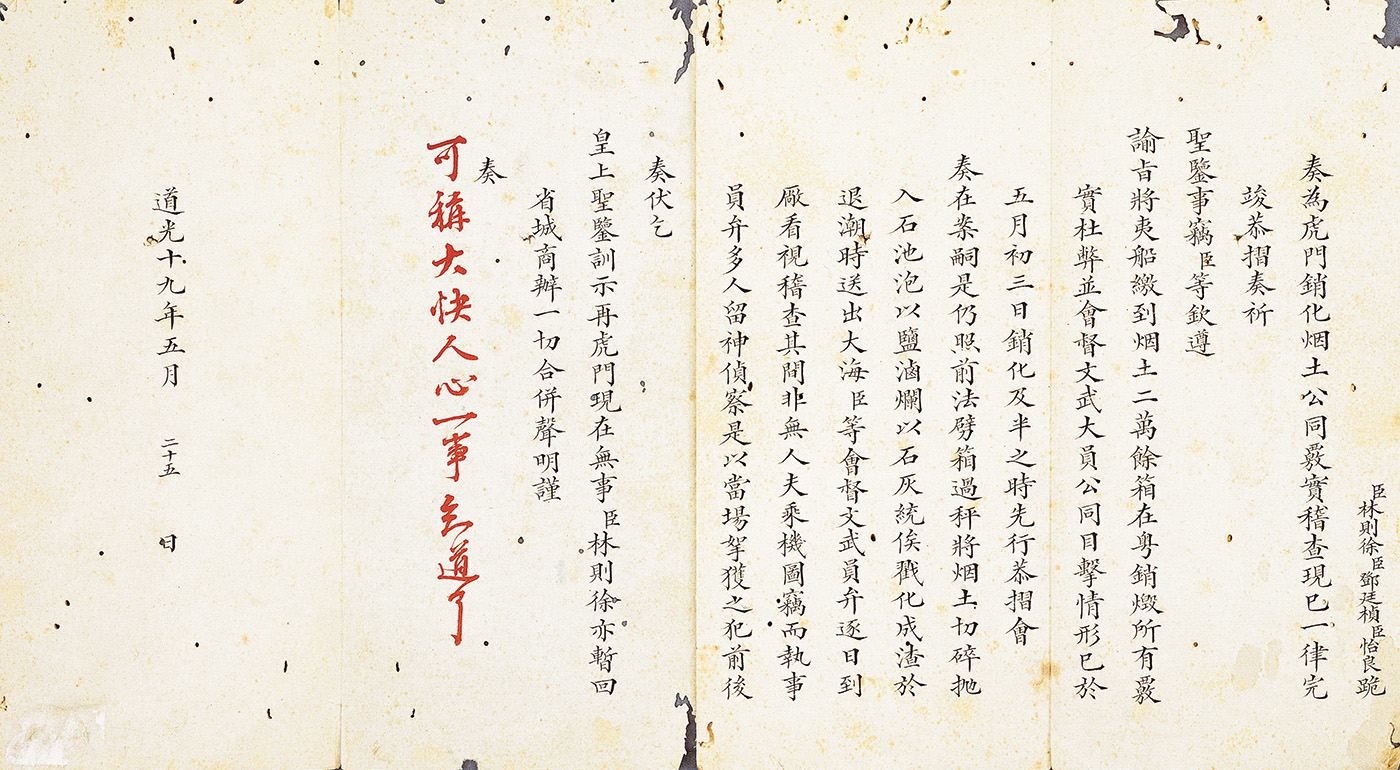 臣林則徐臣鄧廷楨臣怡良跪
奏為虎門銷化烟土公同覈實稽查現已一律完
竣恭摺奏祈
聖鑒事竊臣等欽遵
諭旨將夷船繳到烟土二萬餘箱在粵銷燬所有覈
實杜弊並會督文武大員公同目擊情形已於
五月初三日銷化及半之時先行恭摺會
奏在案嗣是仍照前法劈箱過秤將烟土切碎拋
入石池泡以鹽滷爛以石灰統俟戳化成渣於
退潮時送出大海臣等會督文武員弁逐日到
廠看視稽查其間非無人夫乘機圖竊而執事
員弁多人留神偵察是以當場拏獲之犯前後
奏伏乞
皇上聖鑒訓示再虎門現在無事臣林則徐亦暫回
省城商辦一切合併聲明謹
奏
可稱大快人心一事知道了
道光十九年五月 二十五 日